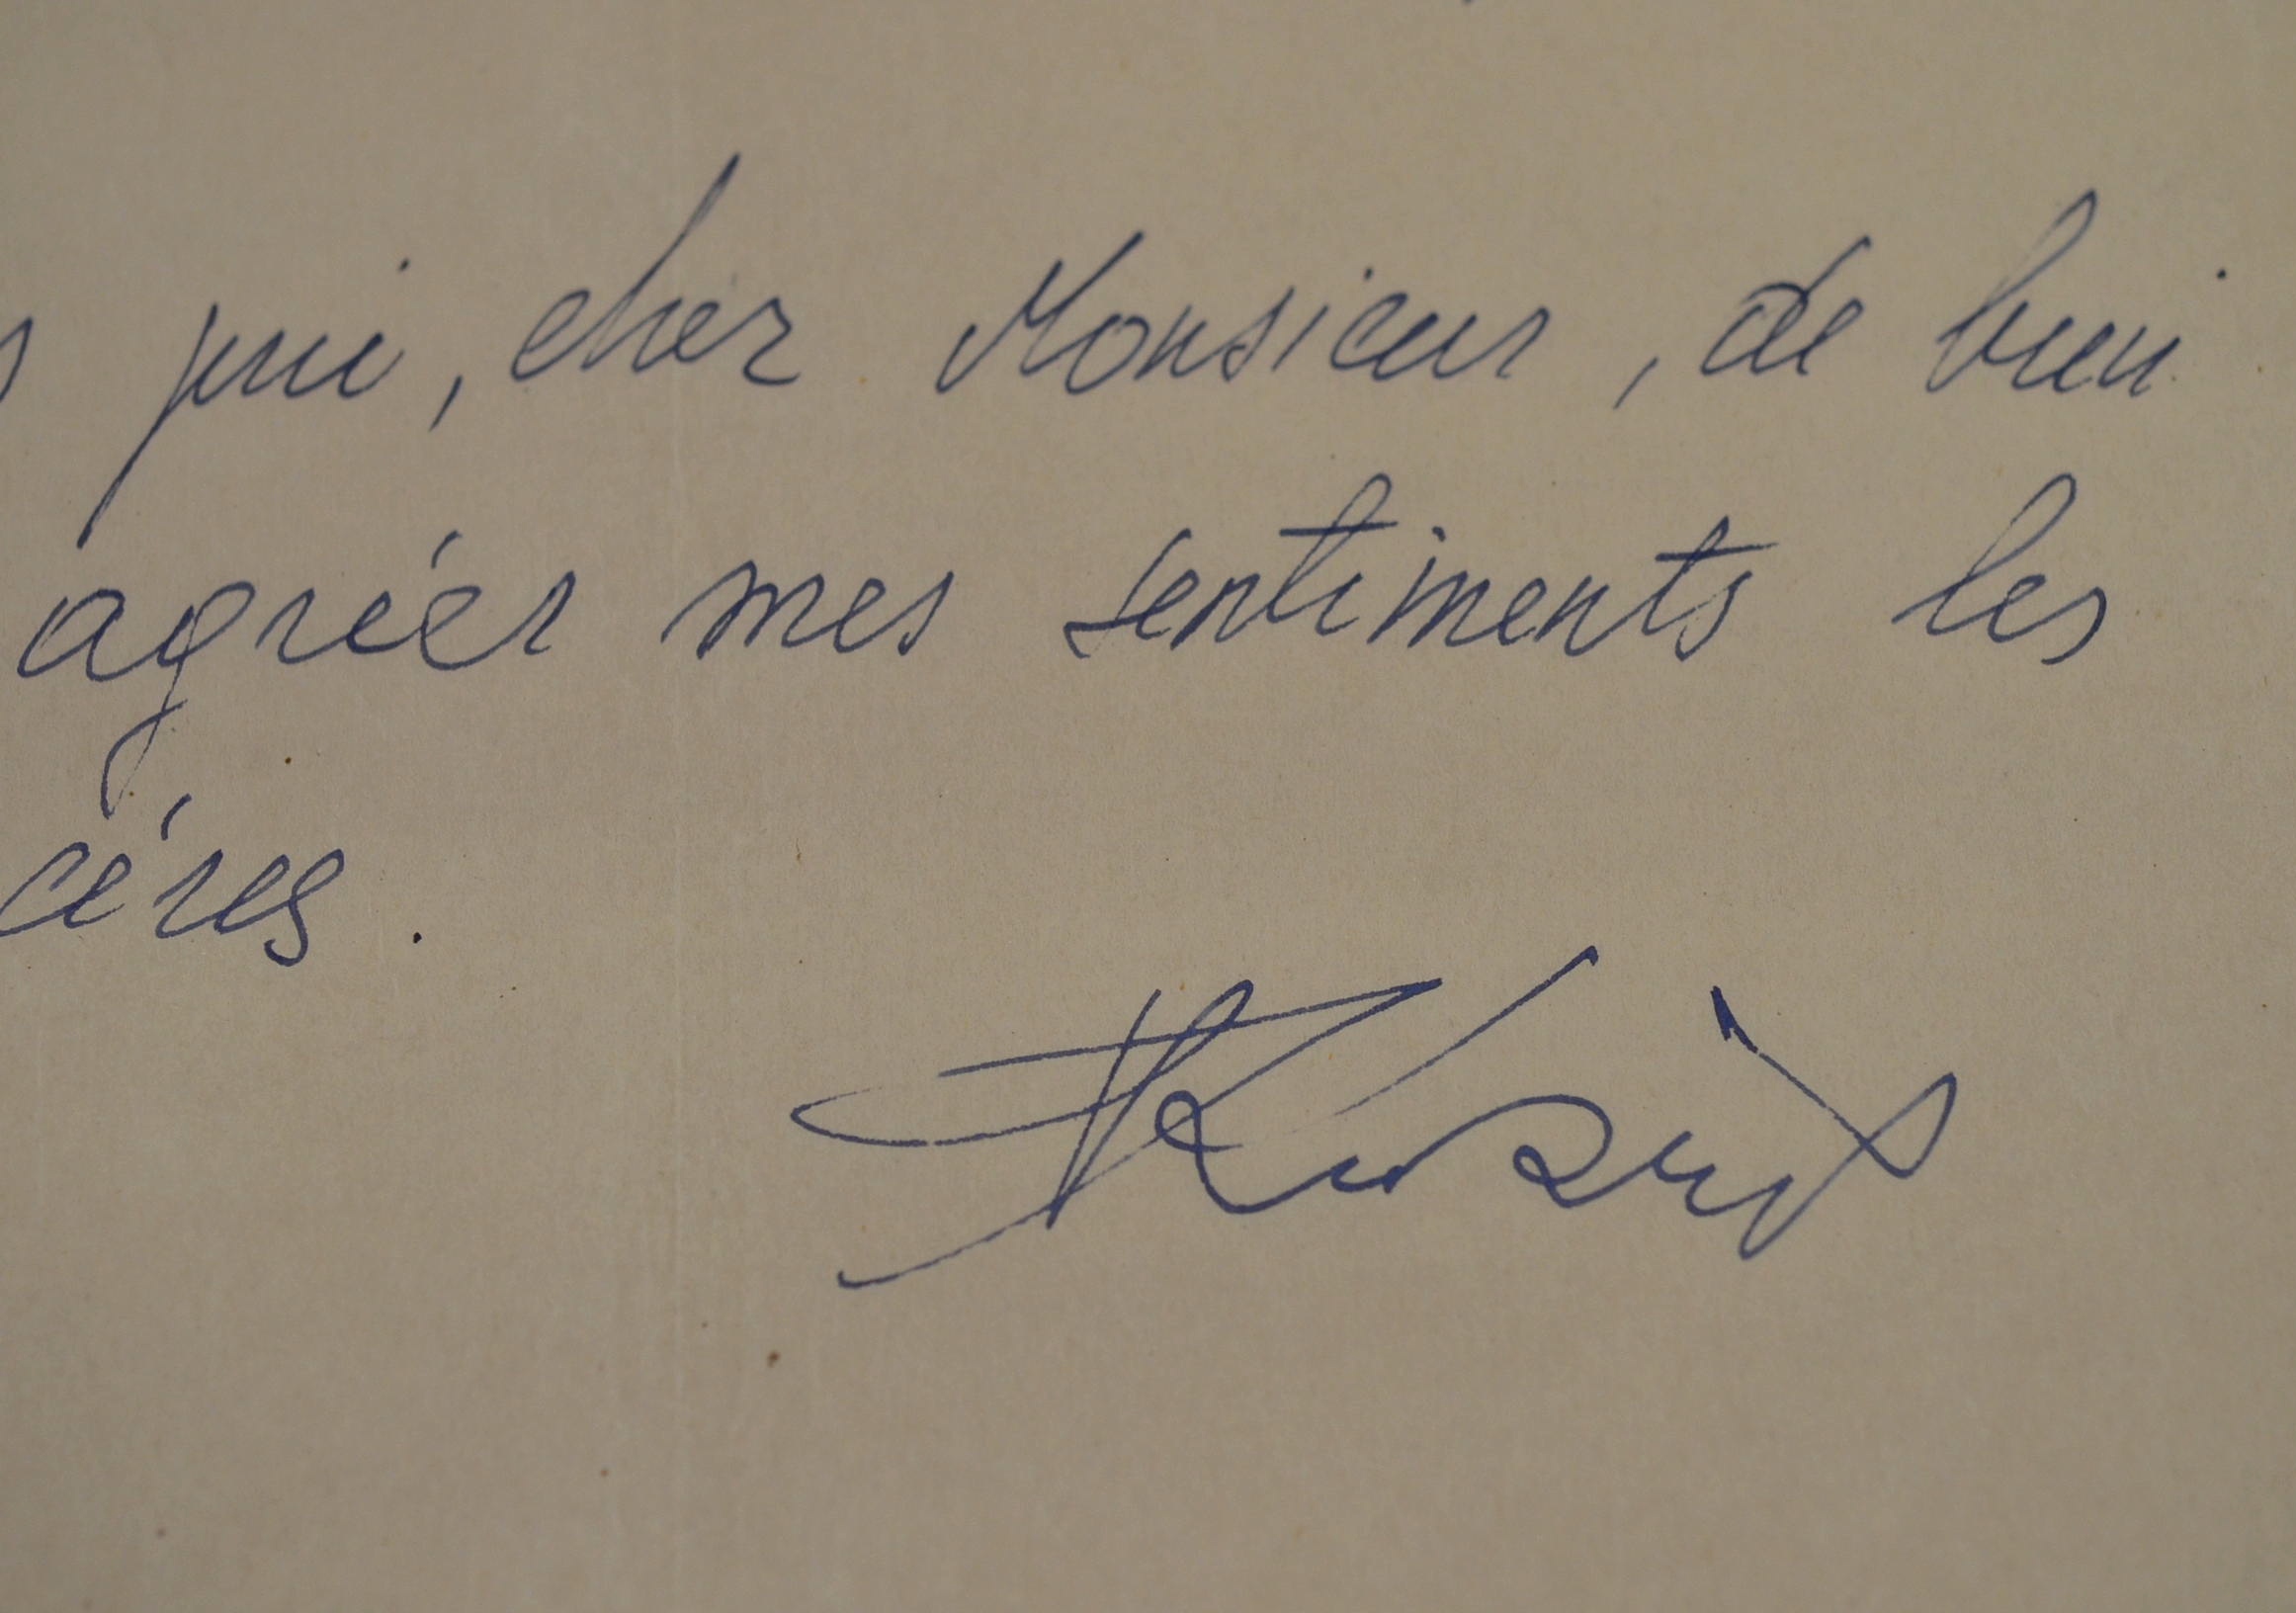 prie, cher Monsieur, de bien
agréer mes sentiments les
cères.